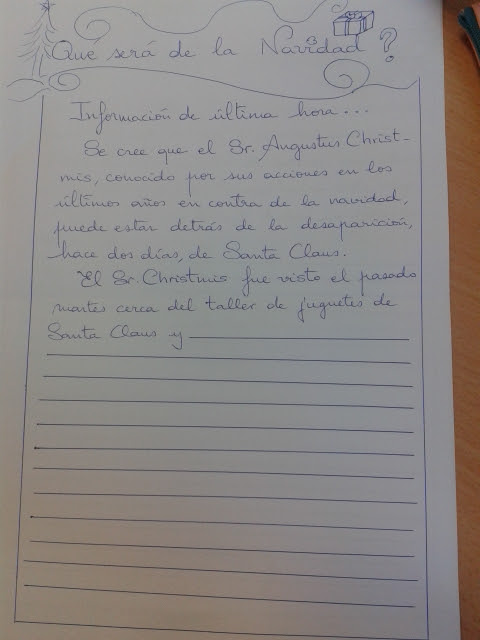 Qué será de la Navidad ?
Información de última hora...
Se cree que el Sr. Angustius Christ-
mis, conocido por sus acciones en los
últimos años en contra de la navidad,
puede estar detrás de la desaparición,
hace dos días, de Santa Claus.
El Sr. Christmis fue visto el pasado
martes cerca del taller de juguetes de
Santa Claus y